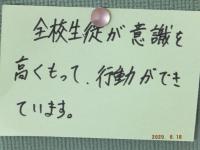 全校生徒が意識を
高くもって、行動ができ
ています。
2020. 6.18